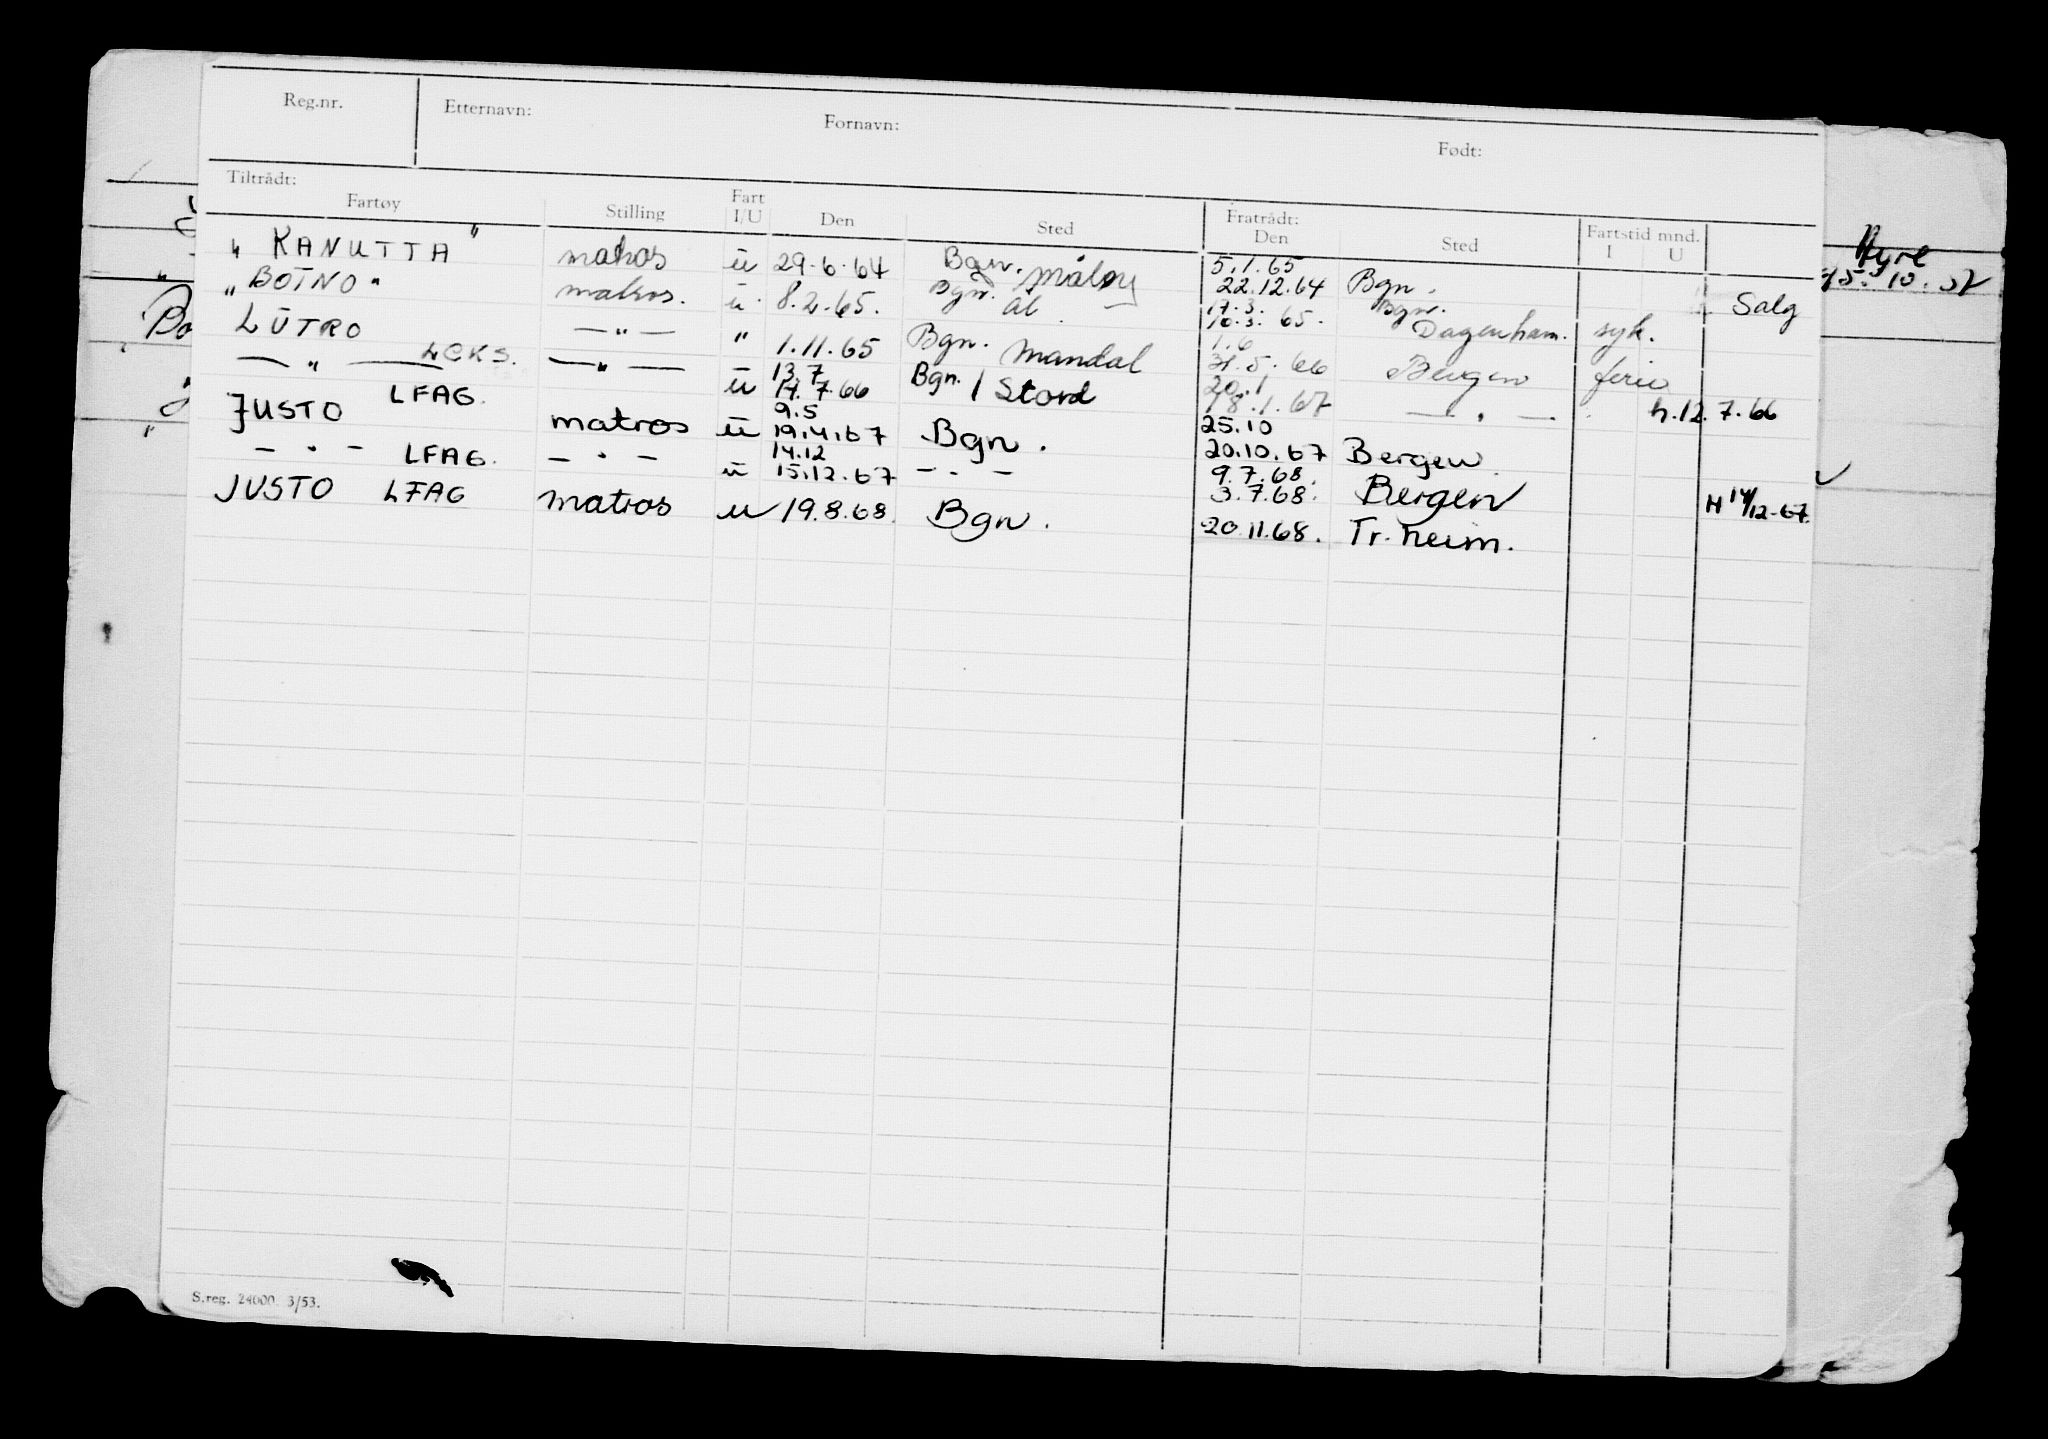 Reg.nr. Etternavn: Fornavn: Født:
Tiltrådt: Fratrådt: Fartstid mnd.
Fartøy Stilling Fart I/U Den Sted Den Sted I U
Hyre
"KANUTTA" matros u 29.6.64 Bgn. Måløy 5.1.65
22.12.64 Bgn. Salg
"BOTNO" matros. u. 8.2.65. Bgn. ål 17.3. Bgn.
16.3. 65. Dagenham. syk.
LUTRO — " — " 1.11.65 Bgn. Mandal 1.6
31.5.66 Bergen ferie
— " — LCKS. — " — 13.7
LFAG. u 14.7.66 Bgn. / Stord 20.1
18.1.67 — " — h.12.7.66
JUSTO matros u 9.5
19.4.67 Bgn. 25.10
20.10.67 Bergen
— " — LFAG. — " — u 14.12
15.12.67 — " — 9.7.68.
3.7.68. Bergen H 14/12-67.
JUSTO LFAG matros u 19.8.68. Bgn. 20.11.68. Tr.heim.
S.reg. 24000. 3/53.